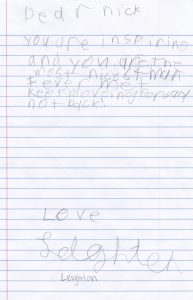 Dear nick
you are inspiring
and you are th-
most nicest man
I ever met
keep moveing forwary
not back.
Love
Leighton
Leighton